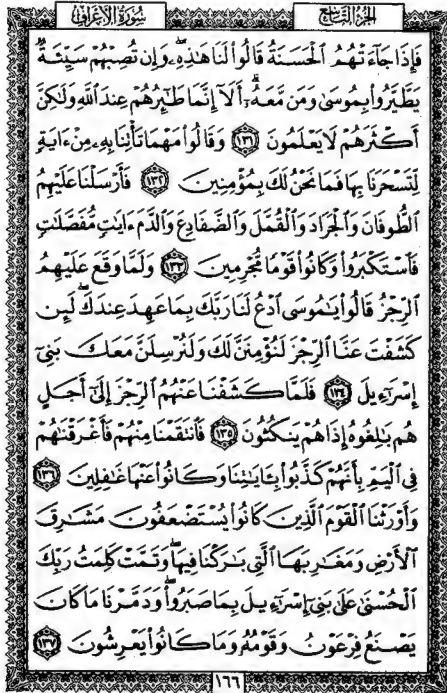 سُورَةُ الْأَعْرَافِ
الجُزْءُ التَّاسِعُ
فَإِذَا جَآءَتْهُمُ ٱلْحَسَنَةُ قَالُوا۟ لَنَا هَٰذِهِۦ ۖ وَإِن تُصِبْهُمْ سَيِّئَةٌ
يَطَّيَّرُوا۟ بِمُوسَىٰ وَمَن مَّعَهُۥٓ ۗ أَلَآ إِنَّمَا طَٰٓئِرُهُمْ عِندَ ٱللَّهِ وَلَٰكِنَّ
أَكْثَرَهُمْ لَا يَعْلَمُونَ ١٣١ وَقَالُوا۟ مَهْمَا تَأْتِنَا بِهِۦ مِنْ ءَايَةٍ
لِّتَسْحَرَنَا بِهَا فَمَا نَحْنُ لَكَ بِمُؤْمِنِينَ ١٣٢ فَأَرْسَلْنَا عَلَيْهِمُ
ٱلطُّوفَانَ وَٱلْجَرَادَ وَٱلْقُمَّلَ وَٱلضَّفَادِعَ وَٱلدَّمَ ءَايَٰتٍ مُّفَصَّلَٰتٍ
فَٱسْتَكْبَرُوا۟ وَكَانُوا۟ قَوْمًا مُّجْرِمِينَ ١٣٣ وَلَمَّا وَقَعَ عَلَيْهِمُ
ٱلرِّجْزُ قَالُوا۟ يَٰمُوسَى ٱدْعُ لَنَا رَبَّكَ بِمَا عَهِدَ عِندَكَ ۖ لَئِن
كَشَفْتَ عَنَّا ٱلرِّجْزَ لَنُؤْمِنَنَّ لَكَ وَلَنُرْسِلَنَّ مَعَكَ بَنِىٓ
إِسْرَٰٓءِيلَ ١٣٤ فَلَمَّا كَشَفْنَا عَنْهُمُ ٱلرِّجْزَ إِلَىٰٓ أَجَلٍ
هُم بَٰلِغُوهُ إِذَا هُمْ يَنكُثُونَ ١٣٥ فَٱنتَقَمْنَا مِنْهُمْ فَأَغْرَقْنَٰهُمْ
فِى ٱلْيَمِّ بِأَنَّهُمْ كَذَّبُوا۟ بِـَٔايَٰتِنَا وَكَانُوا۟ عَنْهَا غَٰفِلِينَ ١٣٦
وَأَوْرَثْنَا ٱلْقَوْمَ ٱلَّذِينَ كَانُوا۟ يُسْتَضْعَفُونَ مَشَٰرِقَ
ٱلْأَرْضِ وَمَغَٰرِبَهَا ٱلَّتِى بَٰرَكْنَا فِيهَا ۖ وَتَمَّتْ كَلِمَتُ رَبِّكَ
ٱلْحُسْنَىٰ عَلَىٰ بَنِىٓ إِسْرَٰٓءِيلَ بِمَا صَبَرُوا۟ ۖ وَدَمَّرْنَا مَا كَانَ
يَصْنَعُ فِرْعَوْنُ وَقَوْمُهُۥ وَمَا كَانُوا۟ يَعْرِشُونَ ١٣٧
١٦٦